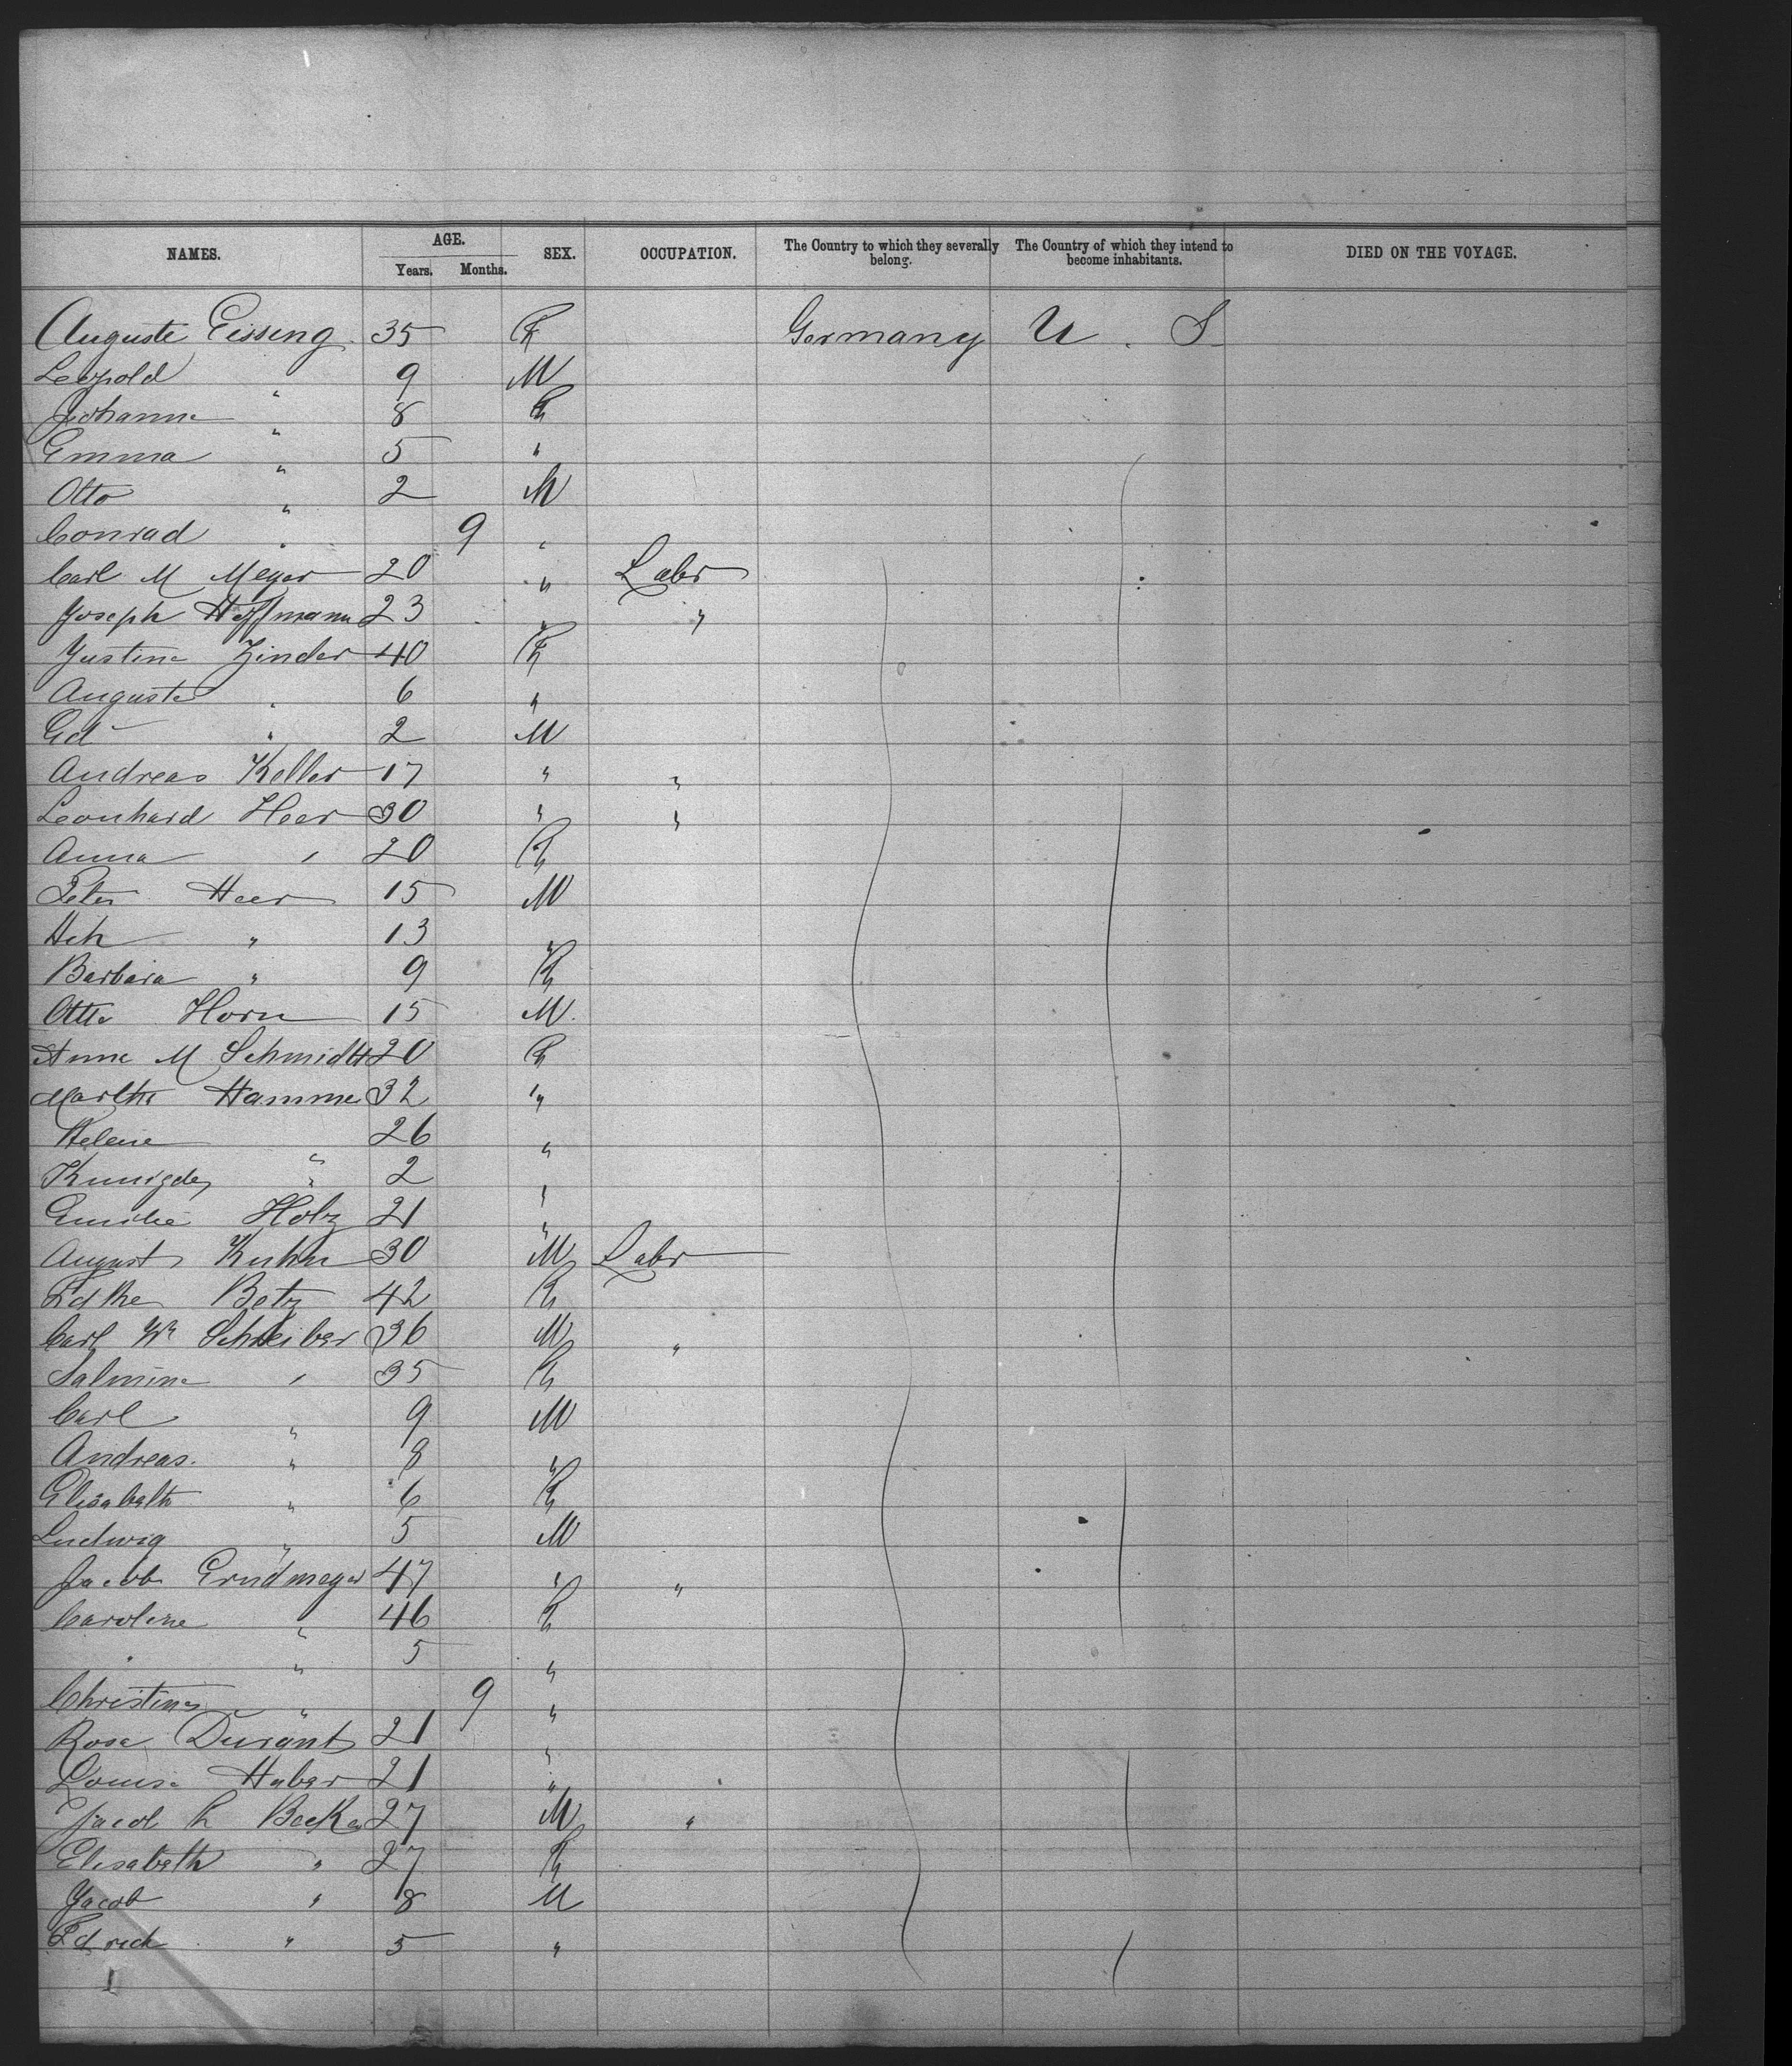 NAMES. AGE. SEX. OCCUPATION. The Country to which they severally belong. The Country of which they intend to become inhabitants. DIED ON THE VOYAGE.
Years. Months.
Auguste Eissing 35 F Germany U. S
Leopold " 9 M
Johanne " 8 F
Emma " 5 "
Otto " 2 M
Conrad " 9 "
Carl M Meyer 20 " Labr
Joseph Hoffmann 23 " "
Justine Zinder 40 F
Auguste " 6 "
Ed " 2 M
Andreas Keller 17 " "
Leonhard Heer 30 " "
Anna " 20 F
Peter Heer 15 M
Hch " 13 "
Barbara " 9 F
Otto Horn 15 M.
Anne M Schmidt 20 F
Martha Hamme 32 "
Helene " 26 "
" 2 "
Emilie Holz 21 "
August Kuhn 30 M Labr
Betz 42 F
Carl Wm Schreiber 36 M "
Salmine " 35 F
Carl " 9 M
Andreas. " 8 "
Elisabeth " 6 F
Ludwig " 5 M
Jacob Grudmeyer 47 " "
Caroline " 46 F
" " 5 "
Christine " 9 "
Rosa Durant 21 "
Louise Huber 21 "
Jacob Becker 27 M "
Elisabeth " 27 F
Jacob " 8 M
" 5 "